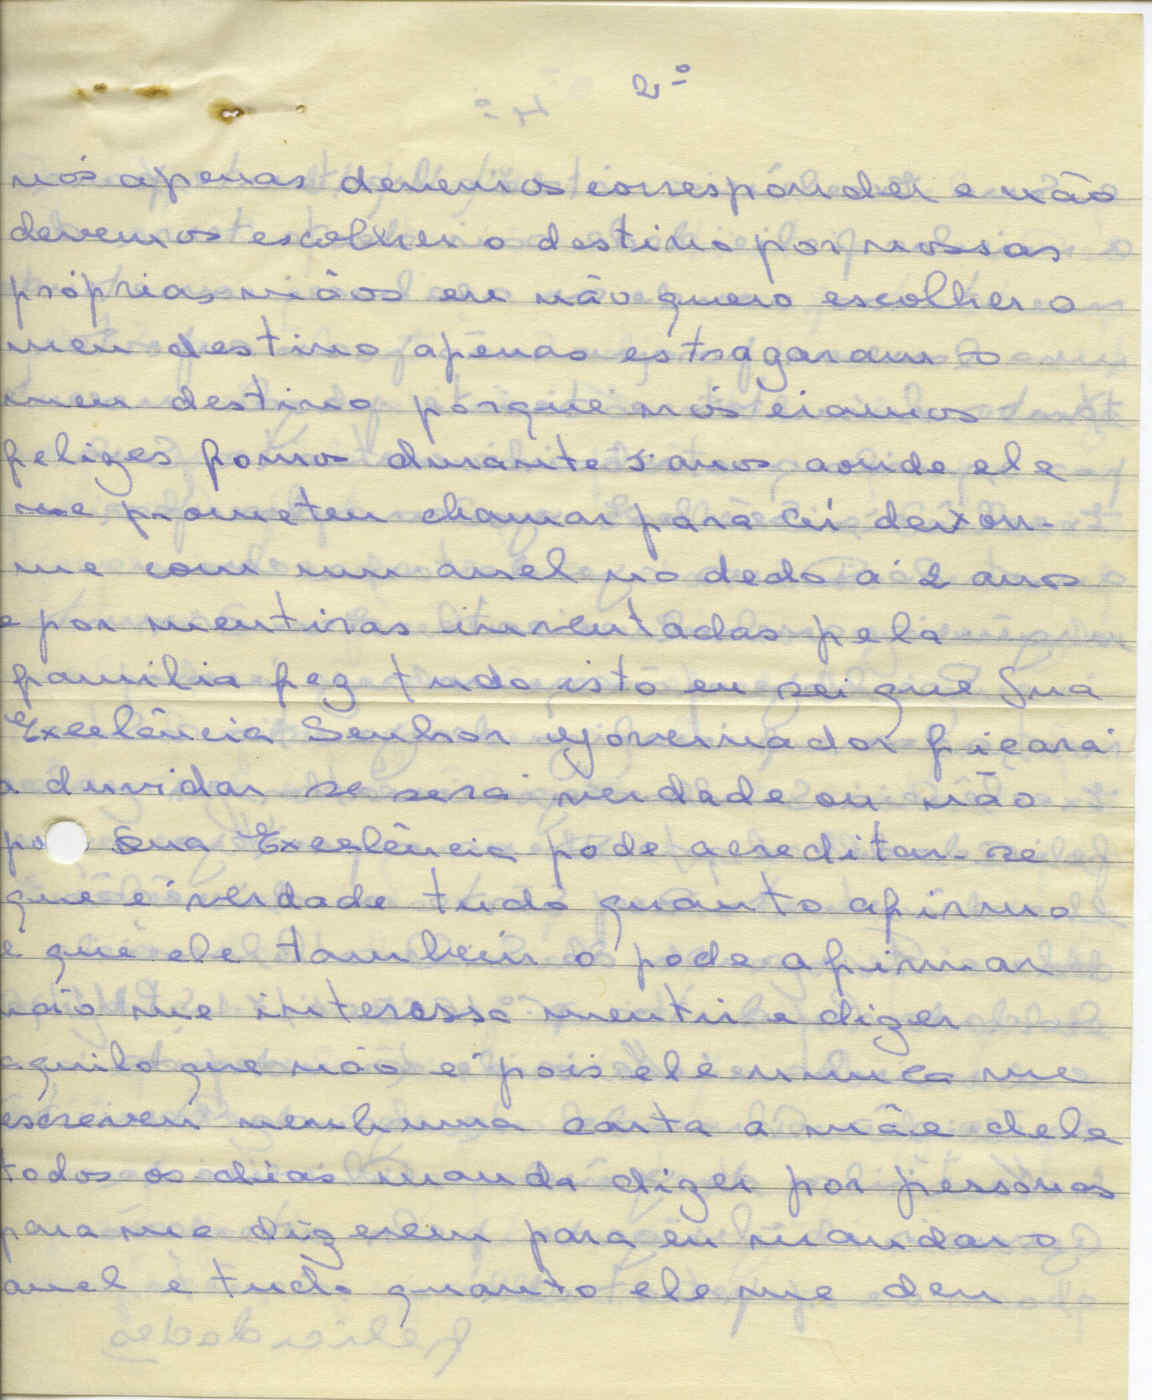 2º
nós apenas devemos correspónder e não
devemos escolher o destino por nossas
próprias mãos eu não quero escolher o
meu destino apenas estragaram o
meu destino porque nós eiamos
felizes fomos durante 5 anos aonde ele
me prometeu chamar para cá deixou-
me com um anel no dedo á 2 anos
e por mentiras inventadas pela
familia fez tudo isto eu sei que Sua
Excelência Senhor Governador ficará
a duvidar se será verdade ou não
po Sua Excelência pode acreditar-se
que é verdade tudo quanto afirmo
e que ele também o pode afirmar
não me interessa mentir e dizer
aquilo que não é pois ele nunca me
escreveu nenhuma carta a mãe dele
todos os dias manda dizer por pessoas
para me dizerem para eu mandar o
anel e tudo quanto ele me deu